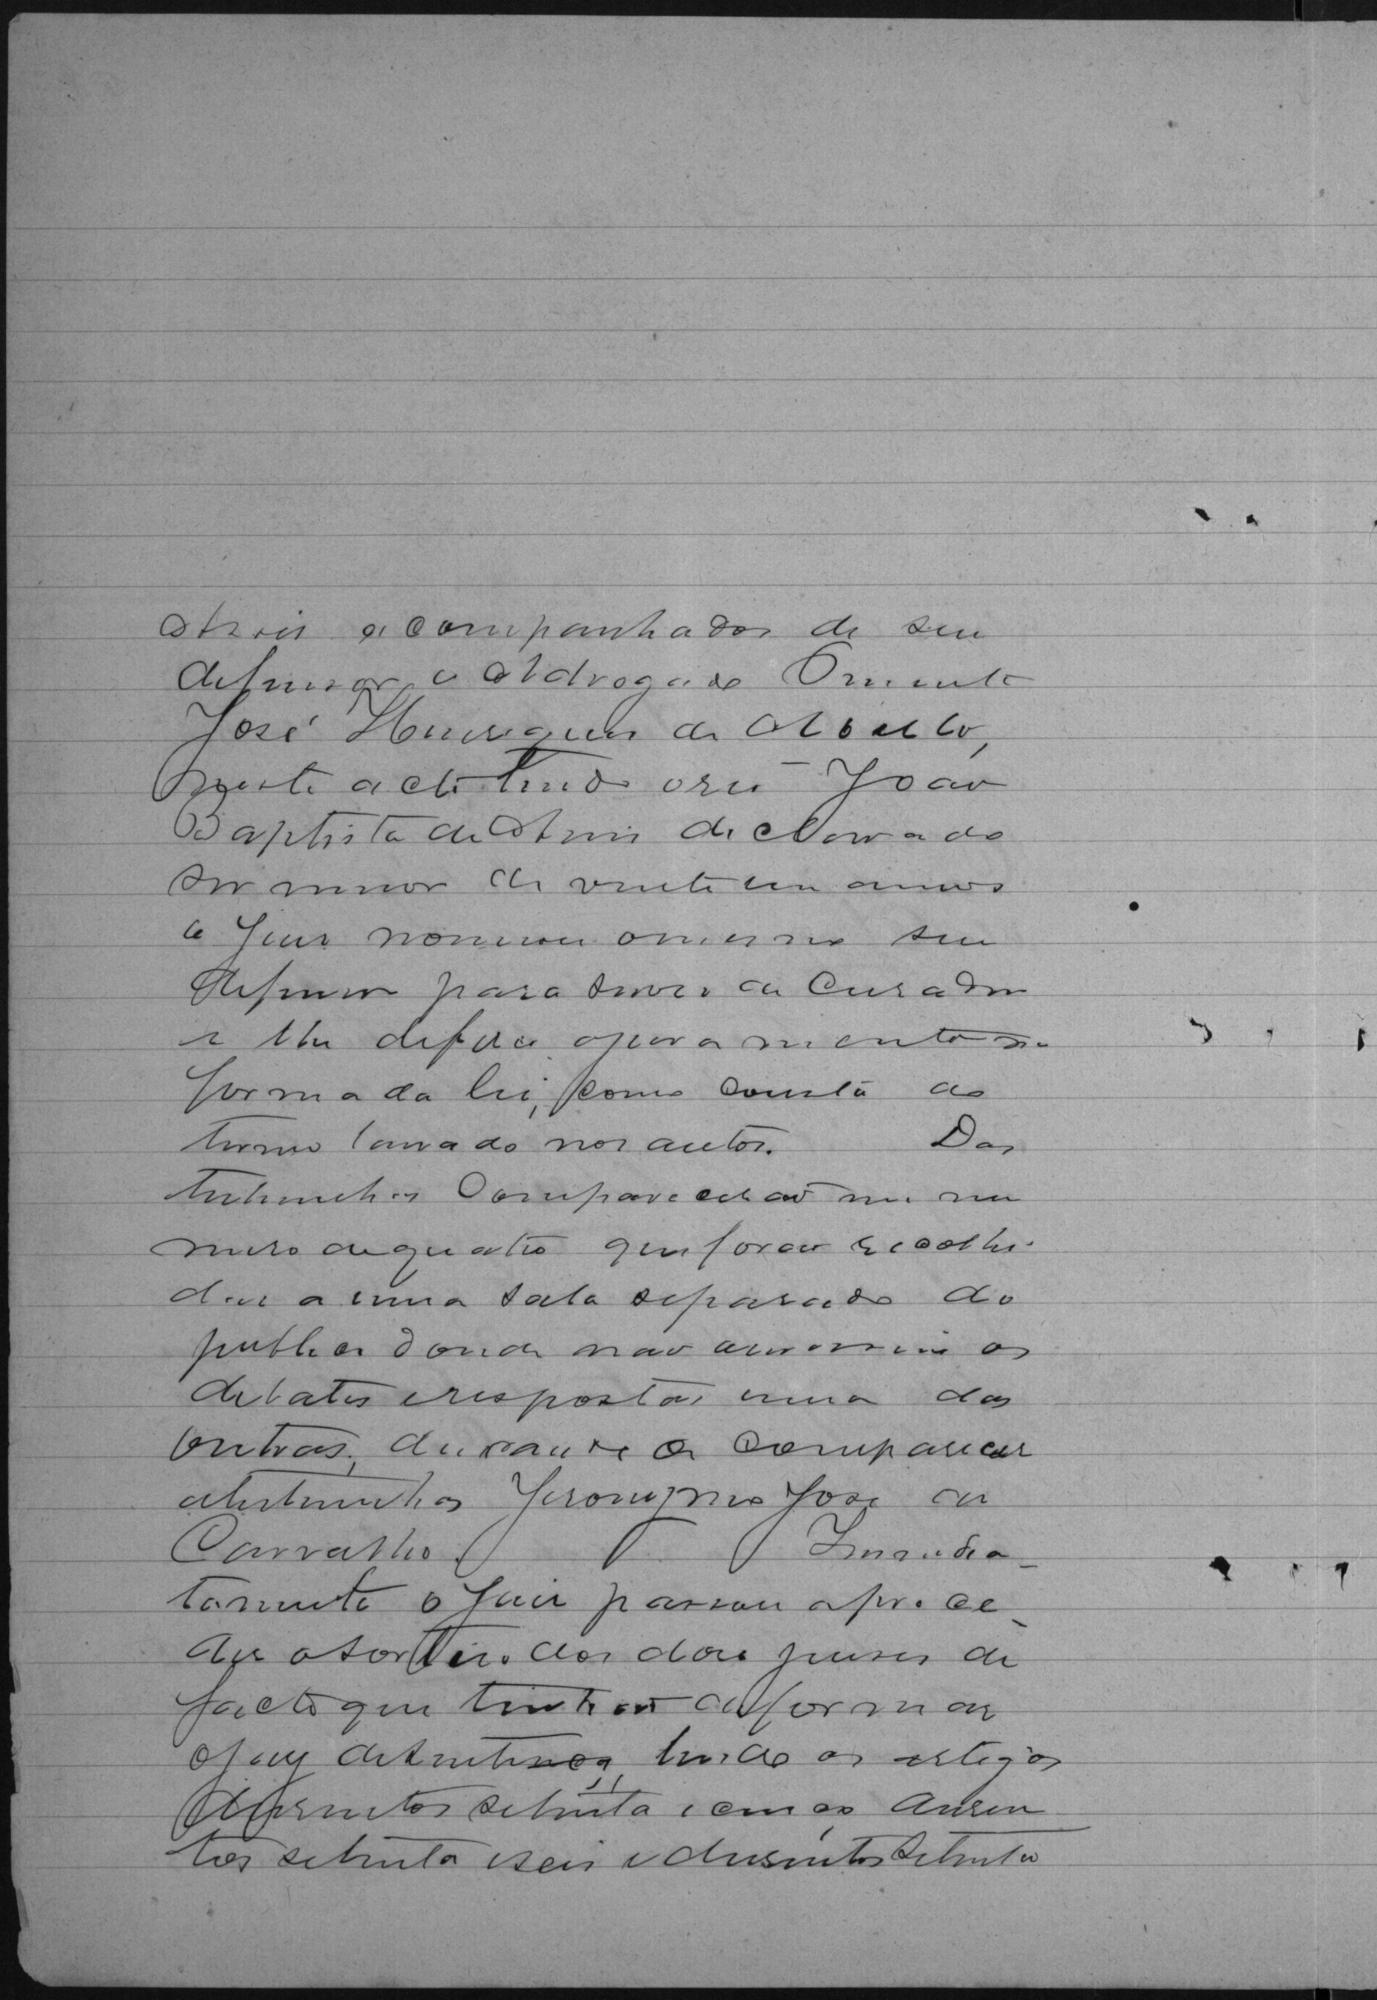 Assis acompanhados de seu
defensor o Advogado
José Henriques de
neste acto tendo o reu João
Baptista de Assis declarado
ser menor de vinte um annos
o Juiz nomeou o mesmo seu
defensor para servir de Curador
e lhe deferio o juramento na
forma da lei, como consta do
termo lavrado nos autos. Das
testemunhas comparecerão em nu
mero de quatro que forão recolhi
das a uma sala separada do
publico donde não ouvissem os
debates e respostas uma das
outras, deixando de comparecer
a testemunha Jeronymo José de
Carvalho. Immedia-
tamente o Juiz passou a proce-
der o sorteio dos doze juizes de
facto que tinhão de formar
o jury de sentença, lendo os artigos
dusentos setenta e cinco, dusen
tos setenta e seis e dusentos setenta